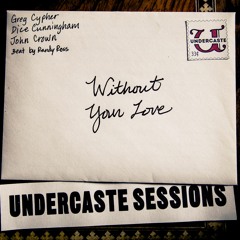 Greg Cypher
Dice Cunningham
John Crown
Beat by Randy Ross
U
UNDERCASTE
33¢
Without
Your Love
UNDERCASTE SESSIONS